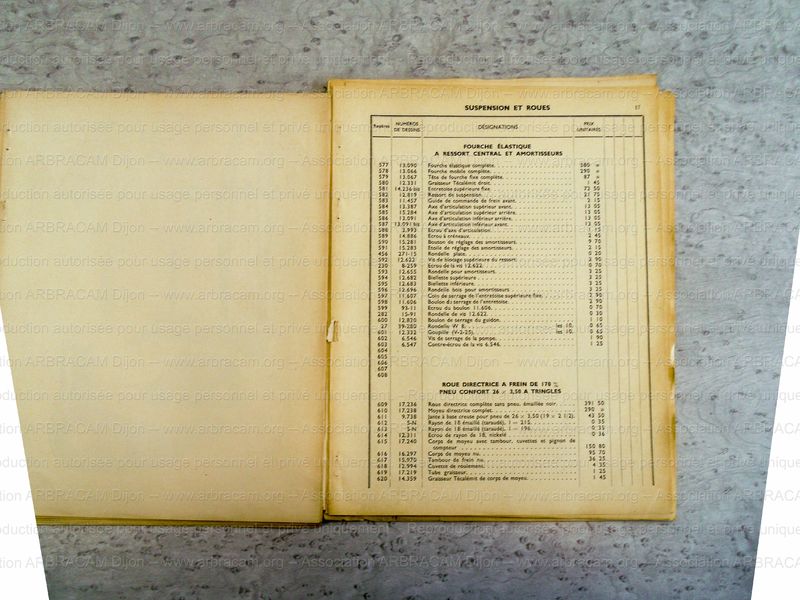 SUSPENSION ET ROUES 17
Repères NUMÉROS DE DESSINS DÉSIGNATIONS PRIX UNITAIRES
FOURCHE ÉLASTIQUE
A RESSORT CENTRAL ET AMORTISSEURS
577 13.090 Fourche élastique complète. 580 »
578 13.066 Fourche mobile complète. 290 »
579 13.067 Tête de fourche fixe complète. 87 »
580 12.331 Graisseur Técalémit droit. 1 45
581 14.236 bis Entretoise supérieure fixe. 72 50
582 12.819 Ressort de suspension. 21 75
583 11.457 Guide de commande de frein avant. 2 15
584 13.387 Axe d'articulation supérieur avant. 13 05
585 15.284 Axe d'articulation supérieur arrière. 13 05
586 13.091 Axe d'articulation inférieur arrière. 13 05
587 13.091 bis Axe d'articulation inférieur avant. 13 05
588 2.993 Ecrou d'axe d'articulation. 1 15
589 14.886 Ecrou à créneaux. 2 45
590 15.281 Bouton de réglage des amortisseurs. 9 70
591 15.283 Etoile de réglage des amortisseurs. 2 15
456 271-15 Rondelle plate. 0 20
592 12.622 Vis de blocage supérieure du ressort. 2 90
230 8-259 Ecrou de la vis 12.622. 0 70
593 12.655 Rondelle pour amortisseurs. 3 25
594 12.682 Biellette supérieure. 3 25
595 12.683 Biellette inférieure. 3 25
596 12.696 Rondelle bois pour amortisseurs. 3 25
597 11.607 Coin de serrage de l'entretoise supérieure fixe. 2 90
598 11.606 Boulon de serrage de l'entretoise. 2 90
599 93-11 Ecrou du boulon 11.606. 0 70
282 15-91 Rondelle de vis 12.622. 0 30
600 12.820 Boulon de serrage du guidon. 1 10
27 39-280 Rondelle W 8. les 10. 0 65
601 12.332 Goupille (V-2-25). les 10. 0 65
602 6.546 Vis de serrage de la pompe. 1 90
603 6.547 Contre-écrou de la vis 6.546. 1 25
604
605
606
607
608
ROUE DIRECTRICE A FREIN DE 170 %
PNEU CONFORT 26 × 3,50 A TRINGLES
609 17.236 Roue directrice complète sans pneu, émaillée noir. 391 50
610 17.238 Moyeu directrice complet. 290 »
611 9.738 Jante à base creuse pour pneu de 26 × 3,50 (19 × 2 1/2). 43 50
612 5-N Rayon de 18 émaillé (taraudé), l = 215. 0 35
613 5-N Rayon de 18 émaillé (taraudé), l = 196. 0 35
614 12.311 Ecrou de rayon de 18, nickelé 0 36
615 17.240 Corps de moyeu avec tambour, cuvettes et pignon de
compteur 150 80
616 16.297 Corps de moyeu nu. 95 70
617 15.970 Tambour de frein nu. 36 25
618 12.994 Cuvette de roulement. 4 35
619 17.219 Tube graisseur. 1 25
620 14.359 Graisseur Técalémit de corps de moyeu. 1 45